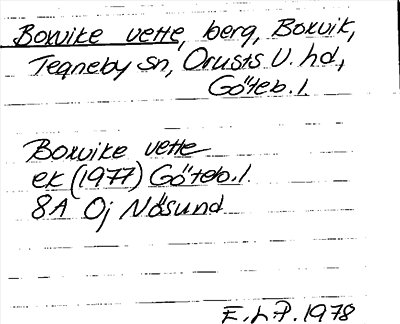 Boxvike vette, berg, Boxvik,
Tegneby sn, Orusts V. hd,
Göteb. l.
Boxvike vette
ek (1977) Göteb. l.
8A Oj Nösund
E. L. P. 1978